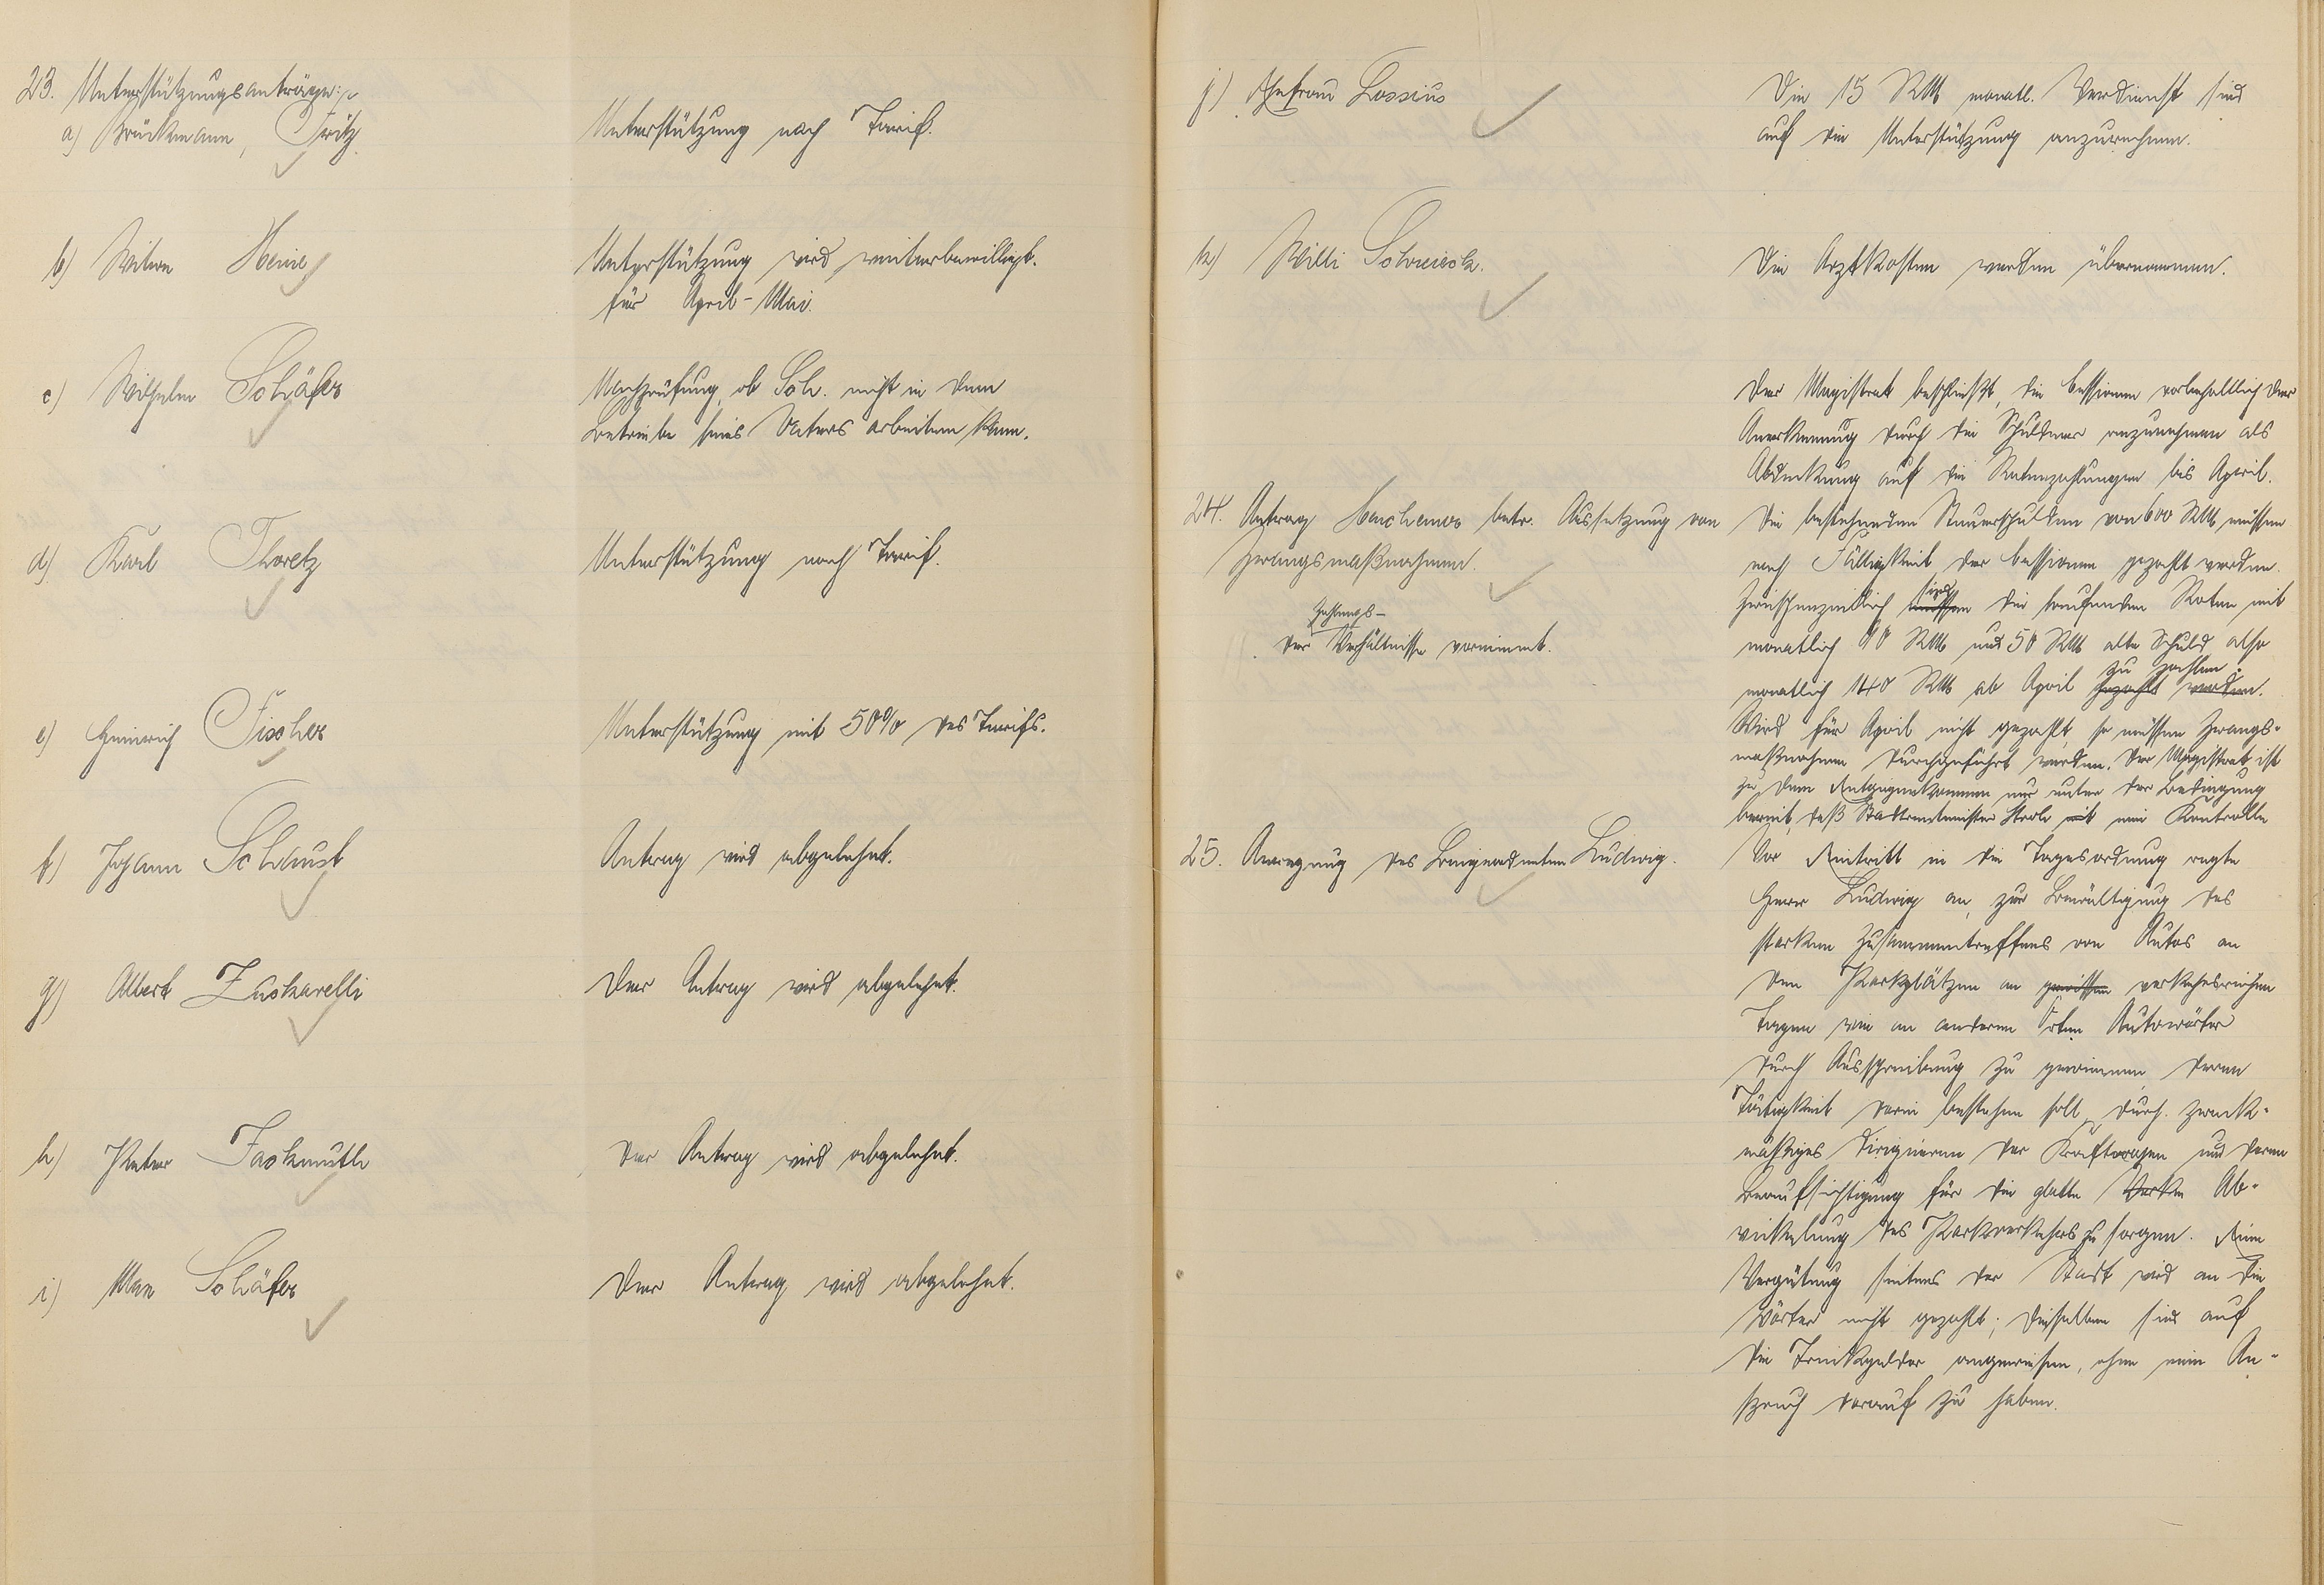 23. Unterstützungsanträge:
a) Brückmann, Fritz
Unterstützung nach Tarif.
b) Witwe Heine
Unterstützung wird weiterbewilligt.
für April-Mai.
c) Wilhelm Schäfer
Nachprüfung, ob Sch. nicht in dem
Betriebe seines Vaters arbeiten kann.
d) Karl Thoretz
Unterstützung nach Tarif.
e) Heinrich Fischer
Unterstützung mit 50% des Tarifs.
f) Johann Schaust
Antrag wird abgelehnt.
g) Albert Zaskarelli
Der Antrag wird abgelehnt.
h) Peter Faskmuth
Der Antrag wird abgelehnt.
i) Max Schäfer
Der Antrag wird abgelehnt.
j) Ehefrau Lossius
Die 15 RM monatl. Verdienst sind
auf die Unterstützung anzurechnen.
k) Willi Schreieck.
Die Arztkosten werden übernommen.
24. Antrag betr. Aussetzung von
Zwangsmaßnahmen.
Der Magistrat beschließt, die Cessionen vorbehaltlich der
Anerkennung durch die Schuldner anzunehmen als
Abdeckung auf die Ratenzahlungen bis April.
Die bestehenden Steuerschulden von 600 RM müssen
nach Fälligkeit der Cessionen gezahlt werden.
Zwischenzeitlich müssen sind die laufenden Raten mit
monatlich 90 RM und 50 RM alte Schuld also
monatlich 140 RM ab April gezahlt werden. zu zahlen.
Wird für April nicht gezahlt, so müssen Zwangs-
maßnahmen durchgeführt werden. Der Magistrat ist
zu dem Entgegenkommen nur unter der Bedingung
bereit, daß Stadtrentmeister mit eine Kontrolle
der Zahlungs-
Verhältnisse vornimmt.
25. Anregung des Beigeordneten Ludwig.
Vor Eintritt in die Tagesordnung regte
Herr Ludwig an, zur Bewältigung des
starken Zusammentreffens von Autos an
den Parkplätzen an gewissen verkehrsreichen
Tagen wie an anderen Orten Autowärter
durch Ausschreibung zu gewinnen, deren
Tätigkeit darin bestehen soll, durch zweck-
mäßiges Dirigieren der Kraftwagen und deren
Beaufsichtigung für die glatte Verke Ab-
wickelung des Parkverkehrs zu sorgen. Eine
Vergütung seitens der Stadt wird an die
Wärter nicht gezahlt; dieselben sind auf
die Trinkgelder angewiesen, ohne einen An-
spruch darauf zu haben.